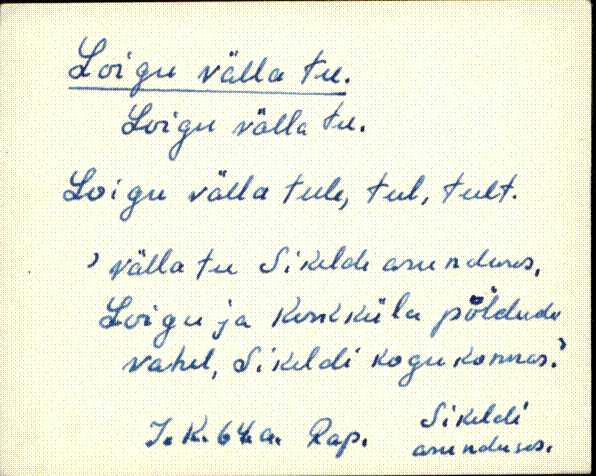 Loigu välla tee.
Loigu välla te.
Loigu välla tele, tel, telt.
välla tee Sikeldi asunduses,
Loigu ja Keskküla põldude
vahel, Sikeldi kogukonnas.
J.K. 64.a. Rap. Sikeldi
asunduses.